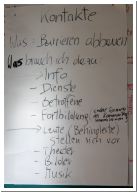 Kontakte
Was: Barrieren abbauen
Was brauch ich dazu:
- Info
- Dienste
- Betroffene
- Fortbildung
- Leute (Behinderte)
stellen sich vor
- Theater
- Bilder
- Musik